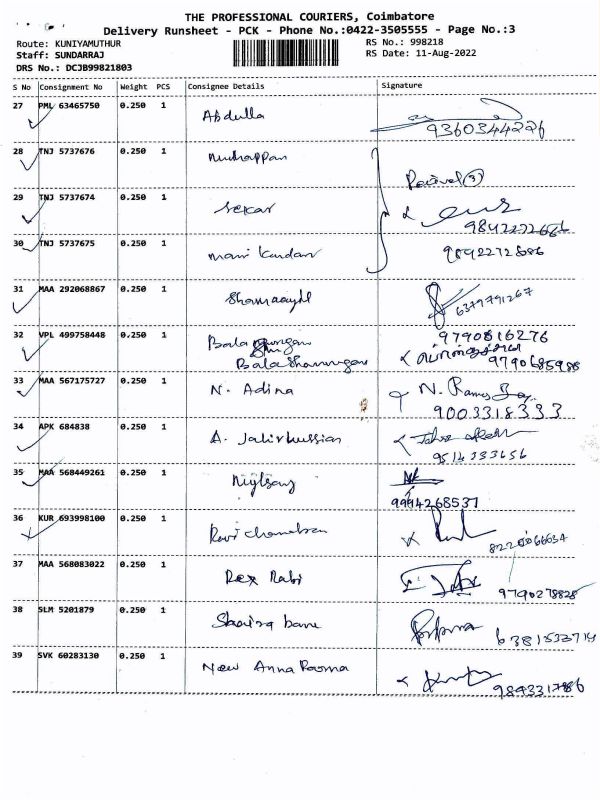 THE PROFESSIONAL COURIERS, Coimbatore
Delivery Runsheet - PCK - Phone No.:0422-3505555 - Page No.:3
Route: KUNIYAMUTHUR
RS No.: 998218
Staff: SUNDARRAJ
RS Date: 11-Aug-2022
DRS No.: DCJB99821803
S No Consignment No Weight PCS Consignee Details Signature
27 PML 63465750 0.250 1 Abdulla
9360344226
28 TNJ 5737676 0.250 1 Muthappan
29 TNJ 5737674 0.250 1 Sekar
9842272686
30 TNJ 5737675 0.250 1 mani kandan 9842272686
31 MAA 292068867 0.250 1
6379791267
32 VPL 499758448 0.250 1 9790816276
Bala Shanmugan 9790685988
33 MAA 567175727 0.250 1 N. Adina N.
9003318333
34 APK 684838 0.250 1 A. Jalirhussian
9514333656
35 MAA 568449261 0.250 1
9994268537
36 KUR 693998100 0.250 1 Ravi chandran
8220066634
37 MAA 568083022 0.250 1 Rex Rabi
9790278828
38 SLM 5201879 0.250 1 Shaira banu
6381533714
39 SVK 60283130 0.250 1 New Anna Poorna
984331786